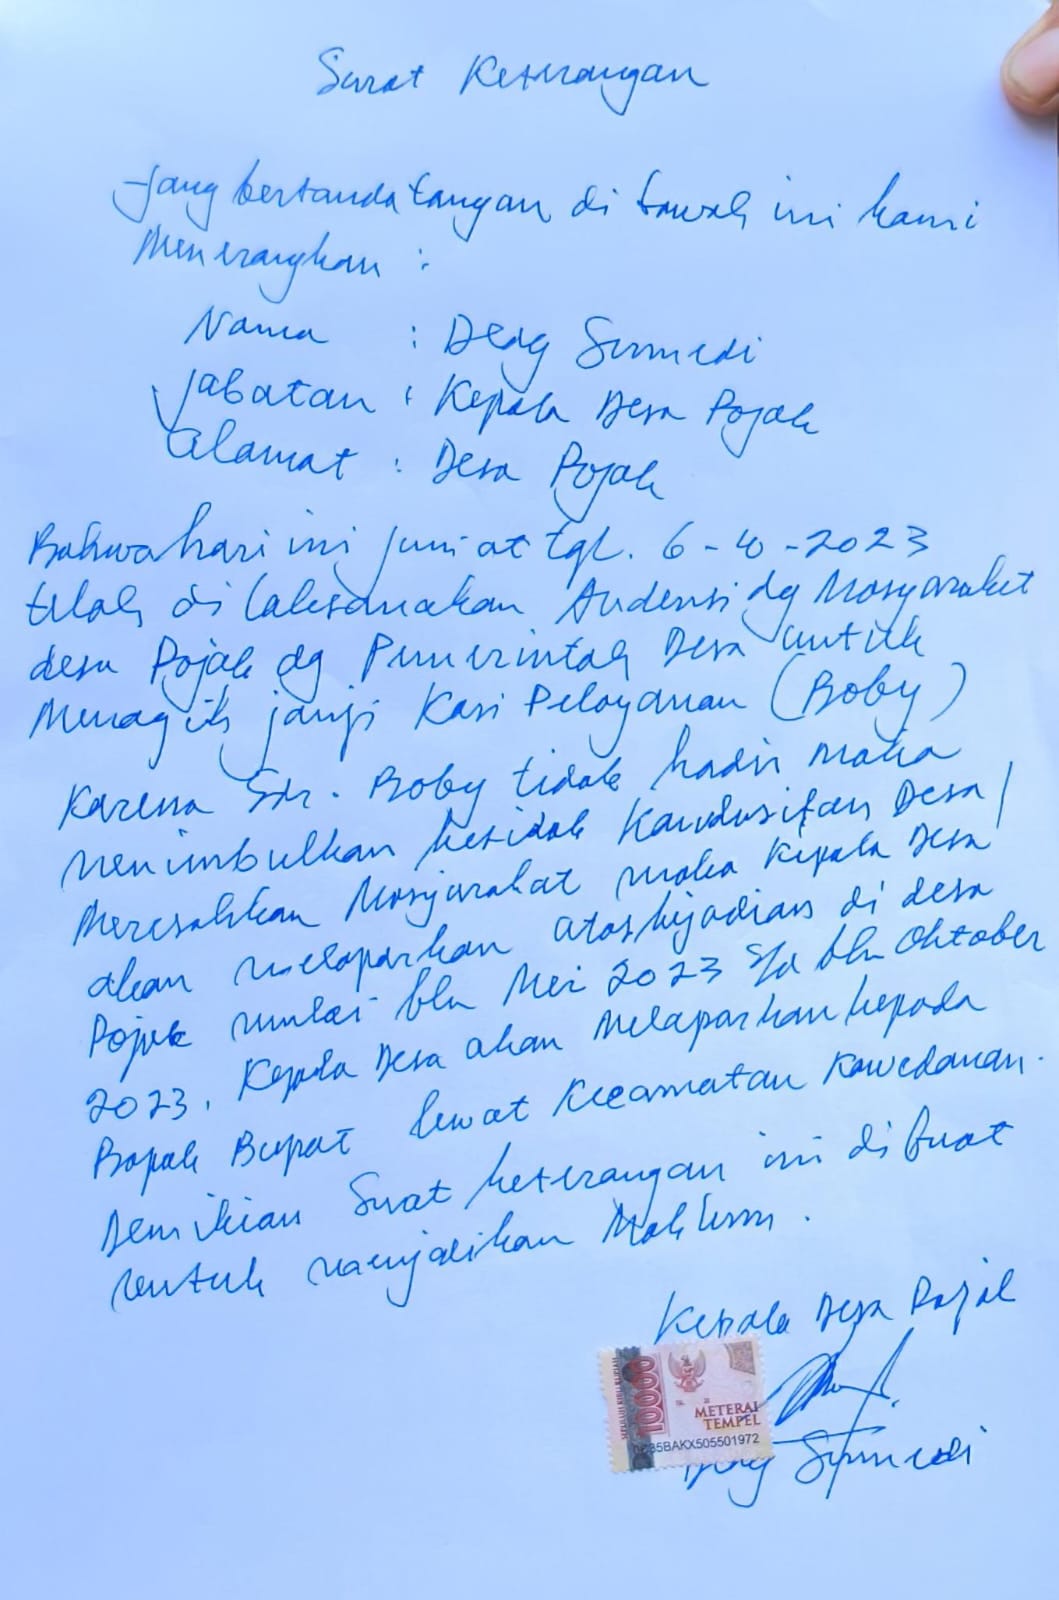 Surat Keterangan
Yang bertanda tangan di bawah ini kami
Menerangkan :
Nama : Dedy Sumedi
Jabatan : Kepala Desa Pojok
Alamat : Desa Pojok
Bahwa hari ini Jum'at tgl. 6-10-2023
telah di laksanakan Audensi dg Masyarakat
desa Pojok dg Pemerintah Desa untuk
Menagih janji Kasi Pelayanan (Boby)
Karena Sdr. Boby tidak hadir maka
menimbulkan ketidak Kondusifan Desa /
Meresahkan Masyarakat maka Kepala Desa
akan melaporkan atas kejadian di desa
Pojok mulai bln Mei 2023 s/d bln Oktober
2023. Kepala Desa akan Melaporkan kepada
Bapak Bupati lewat Kecamatan Kawedanan.
Demikian Surat keterangan ini di buat
untuk menjadikan Maklum.
Kepala Desa Pojok
SEPULUH RIBU RUPIAH
10000
METERAI
TEMPEL
85BAKX505501972
Sumedi